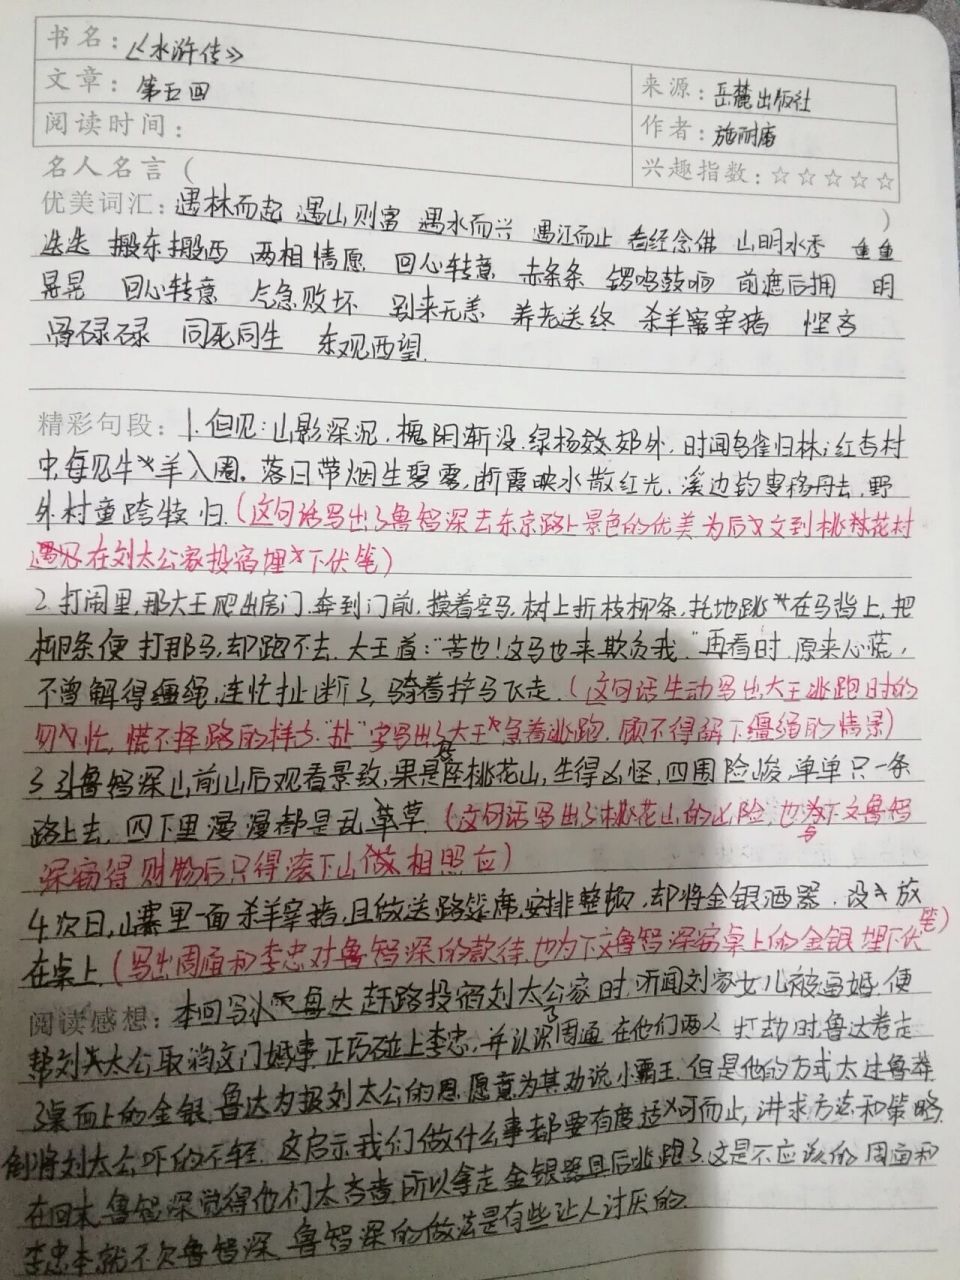 书名：《水浒传》
文章：第五回
来源：岳麓出版社
阅读时间：
作者：施耐庵
名人名言（
兴趣指数：☆☆☆☆☆
）
优美词汇：遇林而起 遇山则富 遇水而兴 遇江而止 看经念佛 山明水秀 重重
迭迭 搬东搬西 两相情愿 回心转意 赤条条 锣鸣鼓响 前遮后拥 明
晃晃 回心转意 气急败坏 别来无恙 养老送终 杀羊宰猪 悭吝
骨碌碌 同死同生 东观西望.
精彩句段：1.但见：山影深沉，槐阴渐没.绿杨郊外，时闻鸟雀归林；红杏村
中，每见牛羊入圈。落日带烟生碧雾，断霞映水散红光.溪边钓叟移舟去，野
外村童跨犊归.（这句话写出了鲁智深去东京路上景色的优美为后文到桃花村
遇见在刘太公家投宿埋下伏笔）
2.打闹里，那大王爬出房门.奔到门前.摸着空马，树上折枝柳条，托地跳在马背上，把
柳条便打那马，却跑不去.大王道："苦也！这马也来欺负我."再看时，原来心慌，
不曾解得缰绳，连忙扯断了，骑着拧马飞走.（这句话生动写出大王逃跑时的
匆忙，慌不择路的样子."扯"字写出了大王急着逃跑.顾不得解下缰绳的情景）
3.引鲁智深山前山后观看景致，果是座桃花山，生得凶怪，四围险峻，单单只一条
路上去，四下里漫漫都是乱草.（这句话写出了桃花山的凶险，也为下文鲁智
深窃得财物后只得滚下山做相照应）
4.次日，山寨里一面杀羊宰猪，且做送路筵席，安排整顿，却将金银酒器.设放
在桌上.（写出周通和李忠对鲁智深的款待.也为下文鲁智深窃桌上的金银埋下伏笔）
阅读感想：本回写鲁达赶路投宿刘太公家时，听闻刘家女儿被逼婚，便
帮刘太公取消这门婚事.正巧碰上李忠，并认识了周通.在他们两人打劫时，鲁达卷走
了桌面上的金银.鲁达为报刘太公的恩.愿意为其劝说小霸王.但是他的方式太过鲁莽.
倒将刘太公吓的不轻.这启示我们做什么事都要有度适可而止，讲求方法和策略.
在回末，鲁智深觉得他们太吝啬所以拿走金银器具后逃跑了.这是不应该的.周通和
李忠本就不欠鲁智深.鲁智深的做法是有些让人讨厌的.